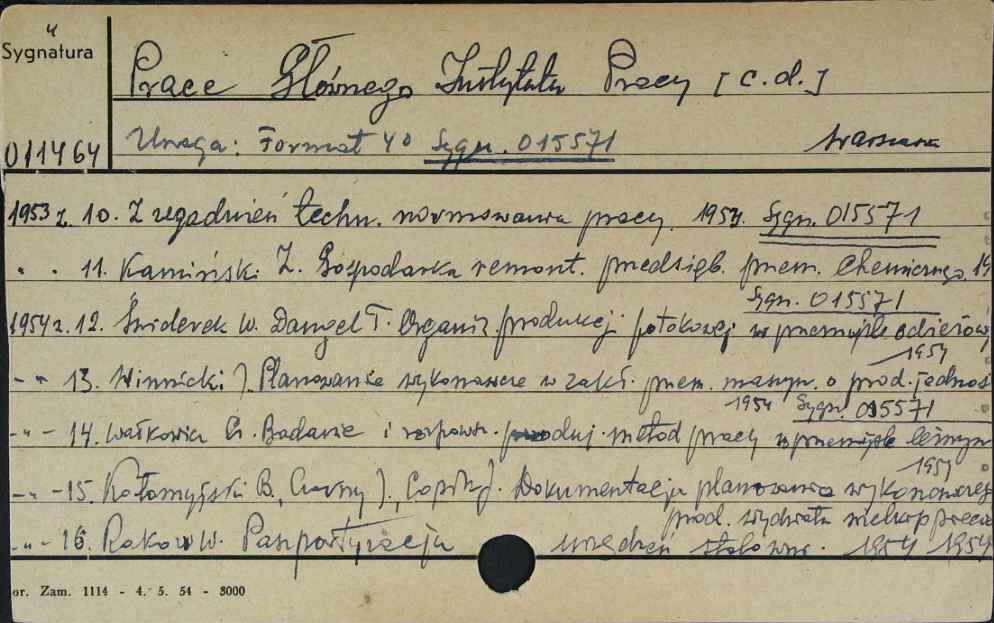 4
Sygnatura
Prace Głównego Instytutu Pracy [c.d.]
011464
Uwaga: Format 4° Sygn. 015571 Warszawa
1953 z. 10. Z zagadnień techn. normowania pracy. 1954. Sygn. 015571
" . 11. Kamiński Z. Gospodarka remont. przedsięb. przem. chemicznego 19
Sygn. 015571
1954 z. 12. Świderek W. Dangel T. Organiz. produkcji potokowej w przemyśle odzieżow
1954
- " 13. Winnicki J. Planowanie wykonawcze w zakł. przem. maszyn. o prod. jednos
1954 Sygn. 015571
- " - 14. Wałkowicz Cz. Badanie i metod pracy w przemyśle leśnym
1954
- " - 15. Kołomyjski B., Czarny J., J. Dokumentacja planowania wykonawczego
prod. wydziału
- " - 16. Rakow W. Paszportyzacja urządzeń 1954 1954
or. Zam. 1114 - 4. 5. 54 - 3000